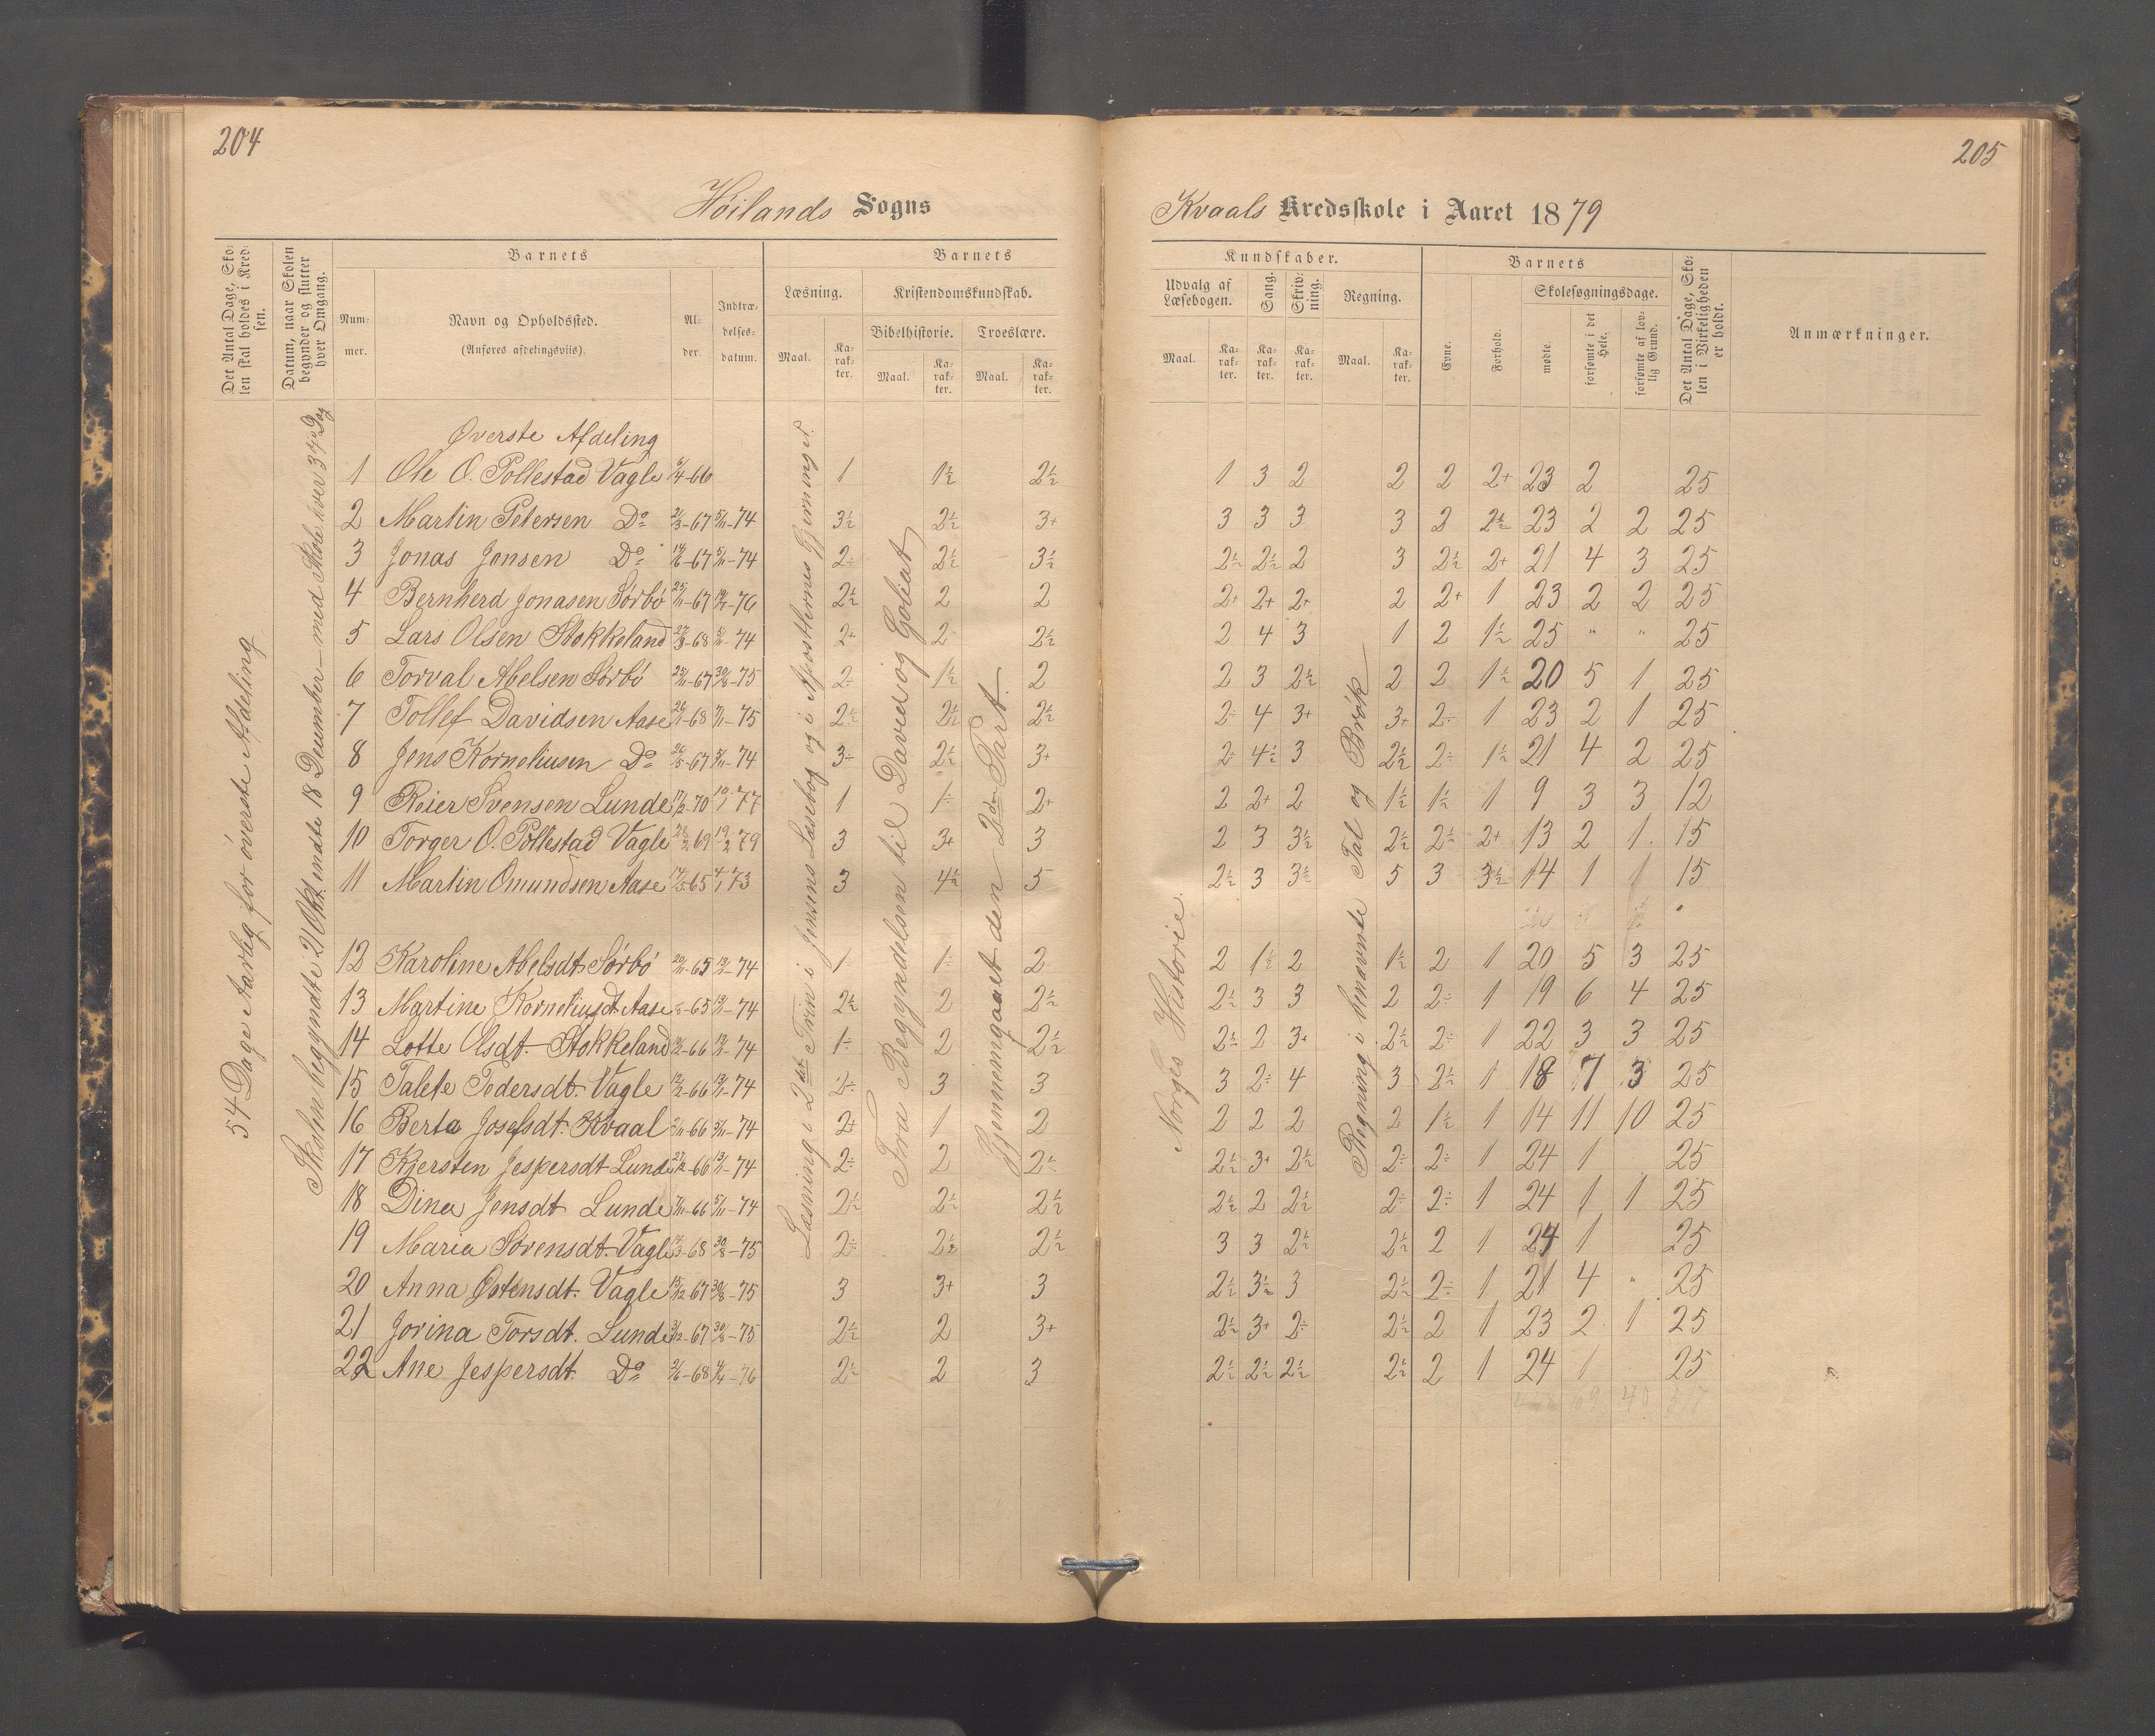 204
Höilands Sogns
Det Antal Dage, Sko-
len skal holdes i Kred-
sen.
Datum, naar Skolen
begynder og slutter
hver Omgang.
Barnets
Num-
mer.
Navn og Opholdssted.
(Anføres afdelingsviis).
Al-
der.
Indtræ-
delses-
datum.
Barnets
Læsning.
Maal.
Ka-
rak-
ter.
Kristendomskundskab.
Bibelhistorie.
Troeslære.
Maal.
Ka-
rak-
ter.
Maal.
Ka-
rak-
ter.
54 Dage Aarlig for överste Afdeling
Skolen begyndte 21 Okt. endte 18 December – med Skole hver 3die Dag
Læsning i 2det Trin i Jensens Læsebog og i Apostlernes Gjerninger.
Fra Begyndelsen til David og Goliat
Gjennemgaaet den 2den Part.
Øverste Afdeling
1 Ole O. Pollestad Vagle 6/4-66 1 1½ 2½
2 Martin Petersen Do 2/3-67 5/11-74 3½ 2½ 3+
3 Jonas Jonsen Do 14/6-67 5/11-74 2÷ 2½ 3½
4 Bernherd Jonasen Sörbö 25/11-67 -76 2½ 2 2
5 Lars Olsen Stokkeland 27/3-68 5/11-74 2+ 2 2½
6 Torval Abelsen Sörbö 25/11-67 30/8-75 2÷ 1½ 2
7 Tollef Davidsen Aase 26/1-68 -75 2½ 2½ 2½
8 Jens Korneliusen Do 26/5-67 5/11-74 3÷ 2½ 3+
9 Reier Svensen Lunde 17/2-70 10/1 77 1 1÷ 2+
10 Torger O. Pollestad Vagle 69 19/2 79 3 3+ 3
11 Martin Omundsen Aase 14/5 65 4/1 73 3 4½ 5
12 Karoline Abelsdt. Sörbö 20/11-65 -74 1÷ 1÷ 2
13 Martine Korneliusdt. Aase -65 -74 2½ 2 2½
14 Lotte Olsdt. Stokkeland -66 -74 1÷ 2 2½
15 Talete Pedersdt. Vagle 12/2-66 -74 2÷ 3 3
16 Berta Josefsdt. Kvaal -66 5/11-74 2+ 1 2
17 Kjersten Jespersdt Lunde 27/12-66 -74 2÷ 2 2½
18 Dina Jensdt Lunde 7/11-66 5/11-74 2½ 2½ 2½
19 Maria Sörensdt. Vagle 14/3-68 30/8-75 2÷ 2½ 2½
20 Anna Østensdt. Vagle 15/12-67 30/8-75 3 3+ 3
21 Jorina Torsdt. Lunde 3/12-67 30/8-75 2½ 2 3+
22 Ane Jespersdt. Do -68 -76 2½ 2 3
205
Kvaals Kredsskole i Aaret 1879
Kundskaber.
Udvalg af
Læsebogen.
Maal.
Ka-
rak-
ter.
Sang.
Ka-
rak-
ter.
Skriv-
ning.
Ka-
rak-
ter.
Regning.
Maal.
Ka-
rak-
ter.
Barnets
Evne.
Forhold.
Skolesøgningsdage.
mødte.
forsømte i det
Hele.
forsømte af lov-
lig Grund.
Det Antal Dage, Sko-
len i Virkeligheden
er holdt.
Anmærkninger.
Norges Historie.
Regning i benævnte Tal og Brök
1 3 2 2 2 2+ 23 2 25
3 3 3 3 3 2½ 23 2 2 25
2½ 2½ 2 3 2½ 2+ 21 4 3 25
2+ 2+ 2+ 2 2+ 1 23 2 2 25
2 4 3 1 2 1½ 25 " " 25
2 3 2½ 2 2 1½ 20 5 1 25
2÷ 4 3+ 3+ 2÷ 1 23 2 1 25
2÷ 4½ 3 2½ 2÷ 1½ 21 4 2 25
2 2+ 2 1½ 1½ 1 9 3 3 12
2 3 3½ 2½ 2½ 2+ 13 2 1 15
2½ 3 3½ 5 3 3½ 14 1 1 15
2 1½ 2 1½ 2 1 20 5 3 25
2½ 3 3 2 2÷ 1 19 6 4 25
2½ 2 3+ 2½ 2÷ 1 22 3 3 25
3 2÷ 4 3 2½ 1 18 7 3 25
2 2 2 2 1½ 1 14 11 10 25
2½ 3+ 2½ 2÷ 2÷ 1 24 1 25
2½ 2 2½ 2÷ 2÷ 1 24 1 1 25
3 3 2½ 2½ 2 1 24 1 25
2½ 3½ 3 2½ 2÷ 1 21 4 " 25
2½ 3+ 2÷ 2½ 2 1 23 2 1 25
2½ 2½ 2½ 2½ 2 1 24 1 25